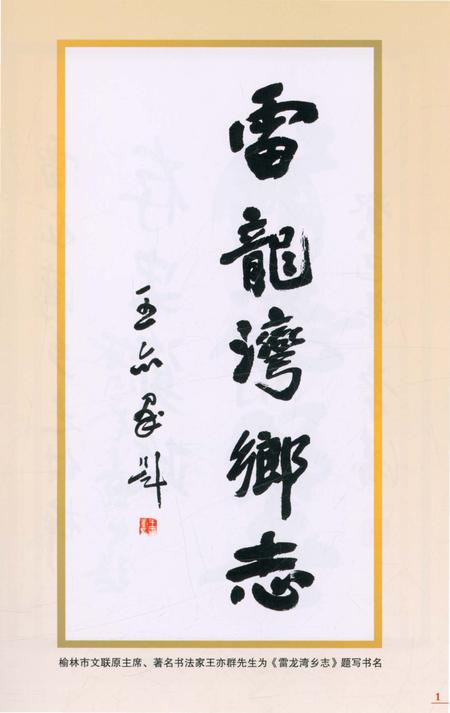 雷龍灣鄉志
王亦羣題
榆林市文联原主席、著名书法家王亦群先生为《雷龙湾乡志》题写书名
1